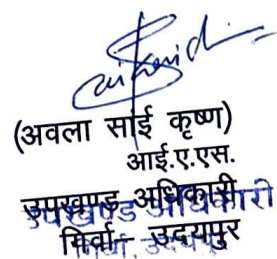 (अवला साई कृष्ण)
आई.ए.एस.
उपखण्ड अधिकारी
गिर्वा - उदयपुर